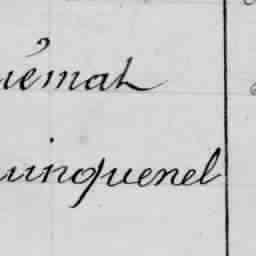 uémat
uinquenel